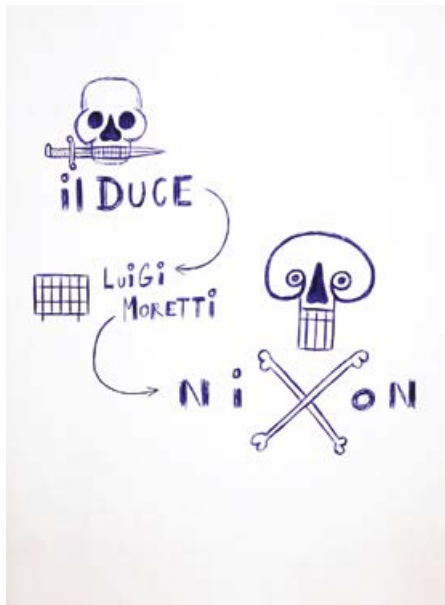 il DUCE
LuiGi
MORETTi
NiXoN